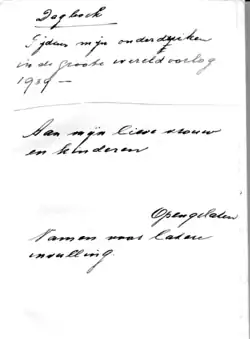 Dagboek
Tijdens mijn onderduiken
in de groote wereldoorlog
1939 —
Aan mijn lieve vrouw
en kinderen
Opengelaten
Namen voor latere
invulling.